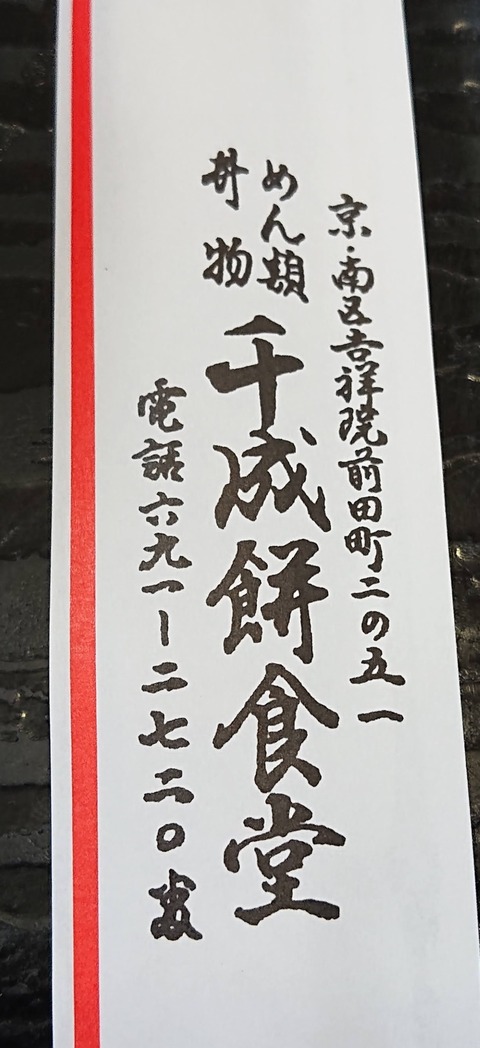 京・南区吉祥院前田町二の五一
めん類
丼物
千成餅食堂
電話六九一ー二七二〇番